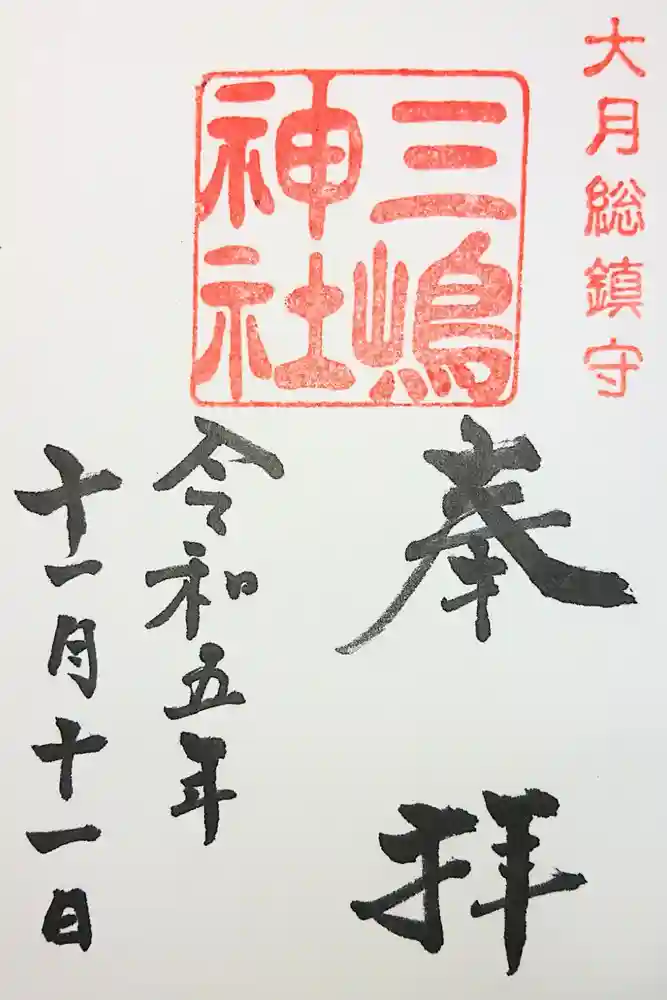 大月総鎮守
三嶋
神社
奉拝
令和五年
十一月十一日